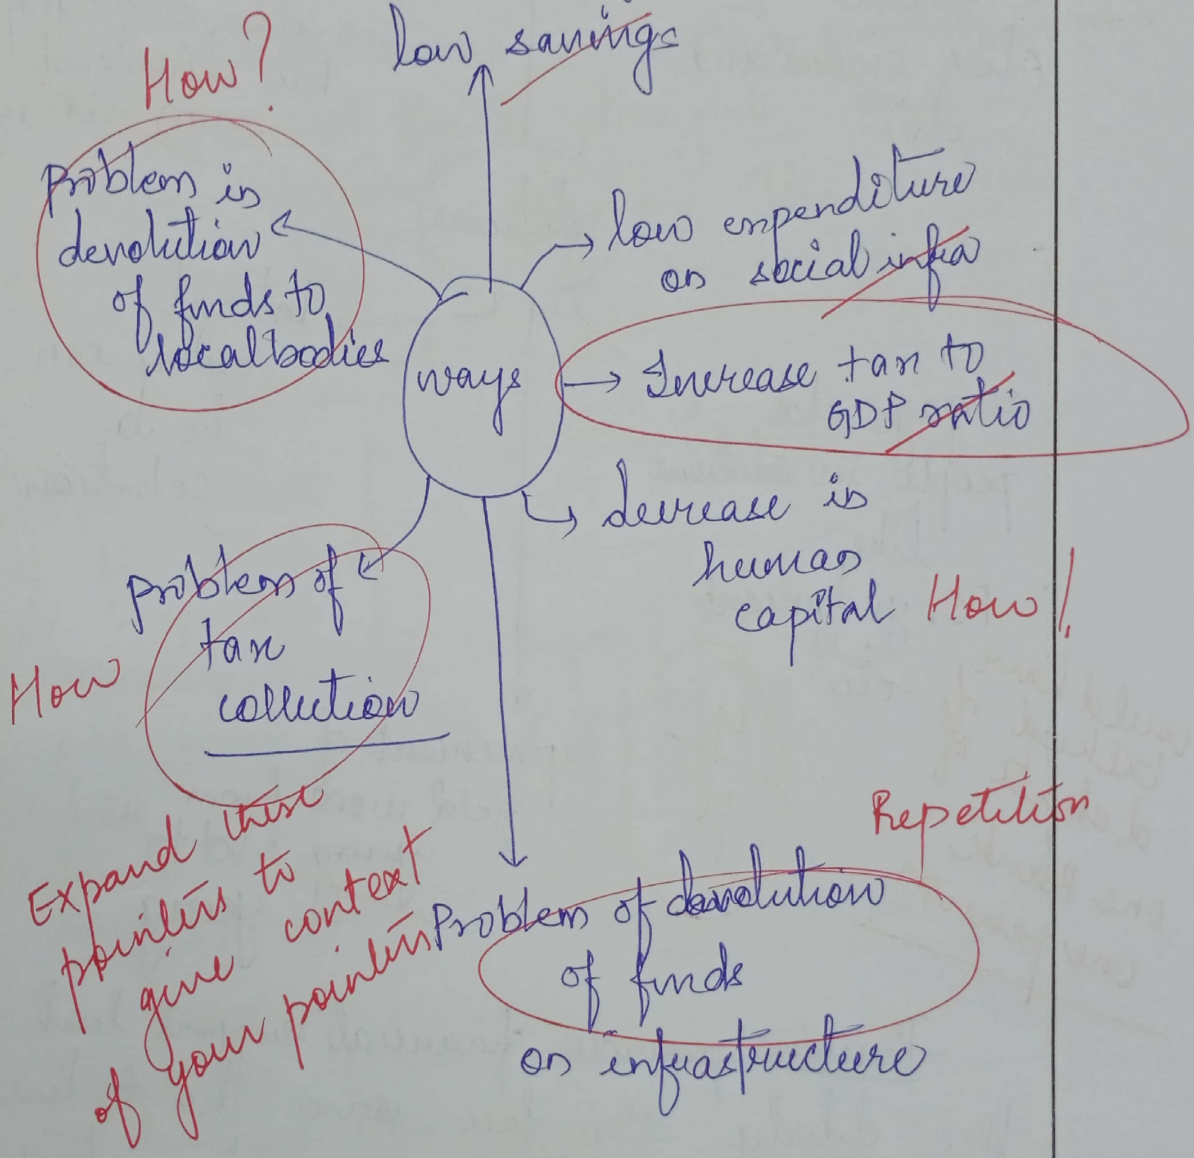 How?
low savings
Problem in
devolution
of funds to
local bodies
low expenditure
on social infra
ways
Increase tax to
GDP ratio
decrease in
human
capital How!
problem of
tax
collection
How
Expand these
pointers to
give context
of your pointers
Repetition
Problem of devolution
of funds
on infrastructure